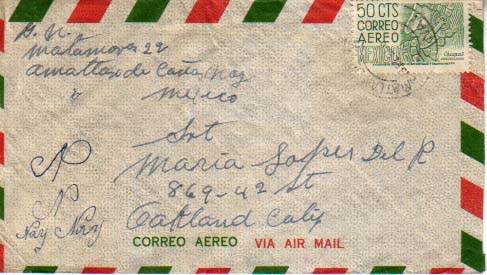 50 CTS
CORREO
AEREO
MEXICO
Chiapas
Matamoros 22
Amatlan de Cañas, Nay
Mexico
Srt
Maria Lopez Del R
869-42 St
Oakland Calif
Nay Nay
CORREO AEREO VIA AIR MAIL